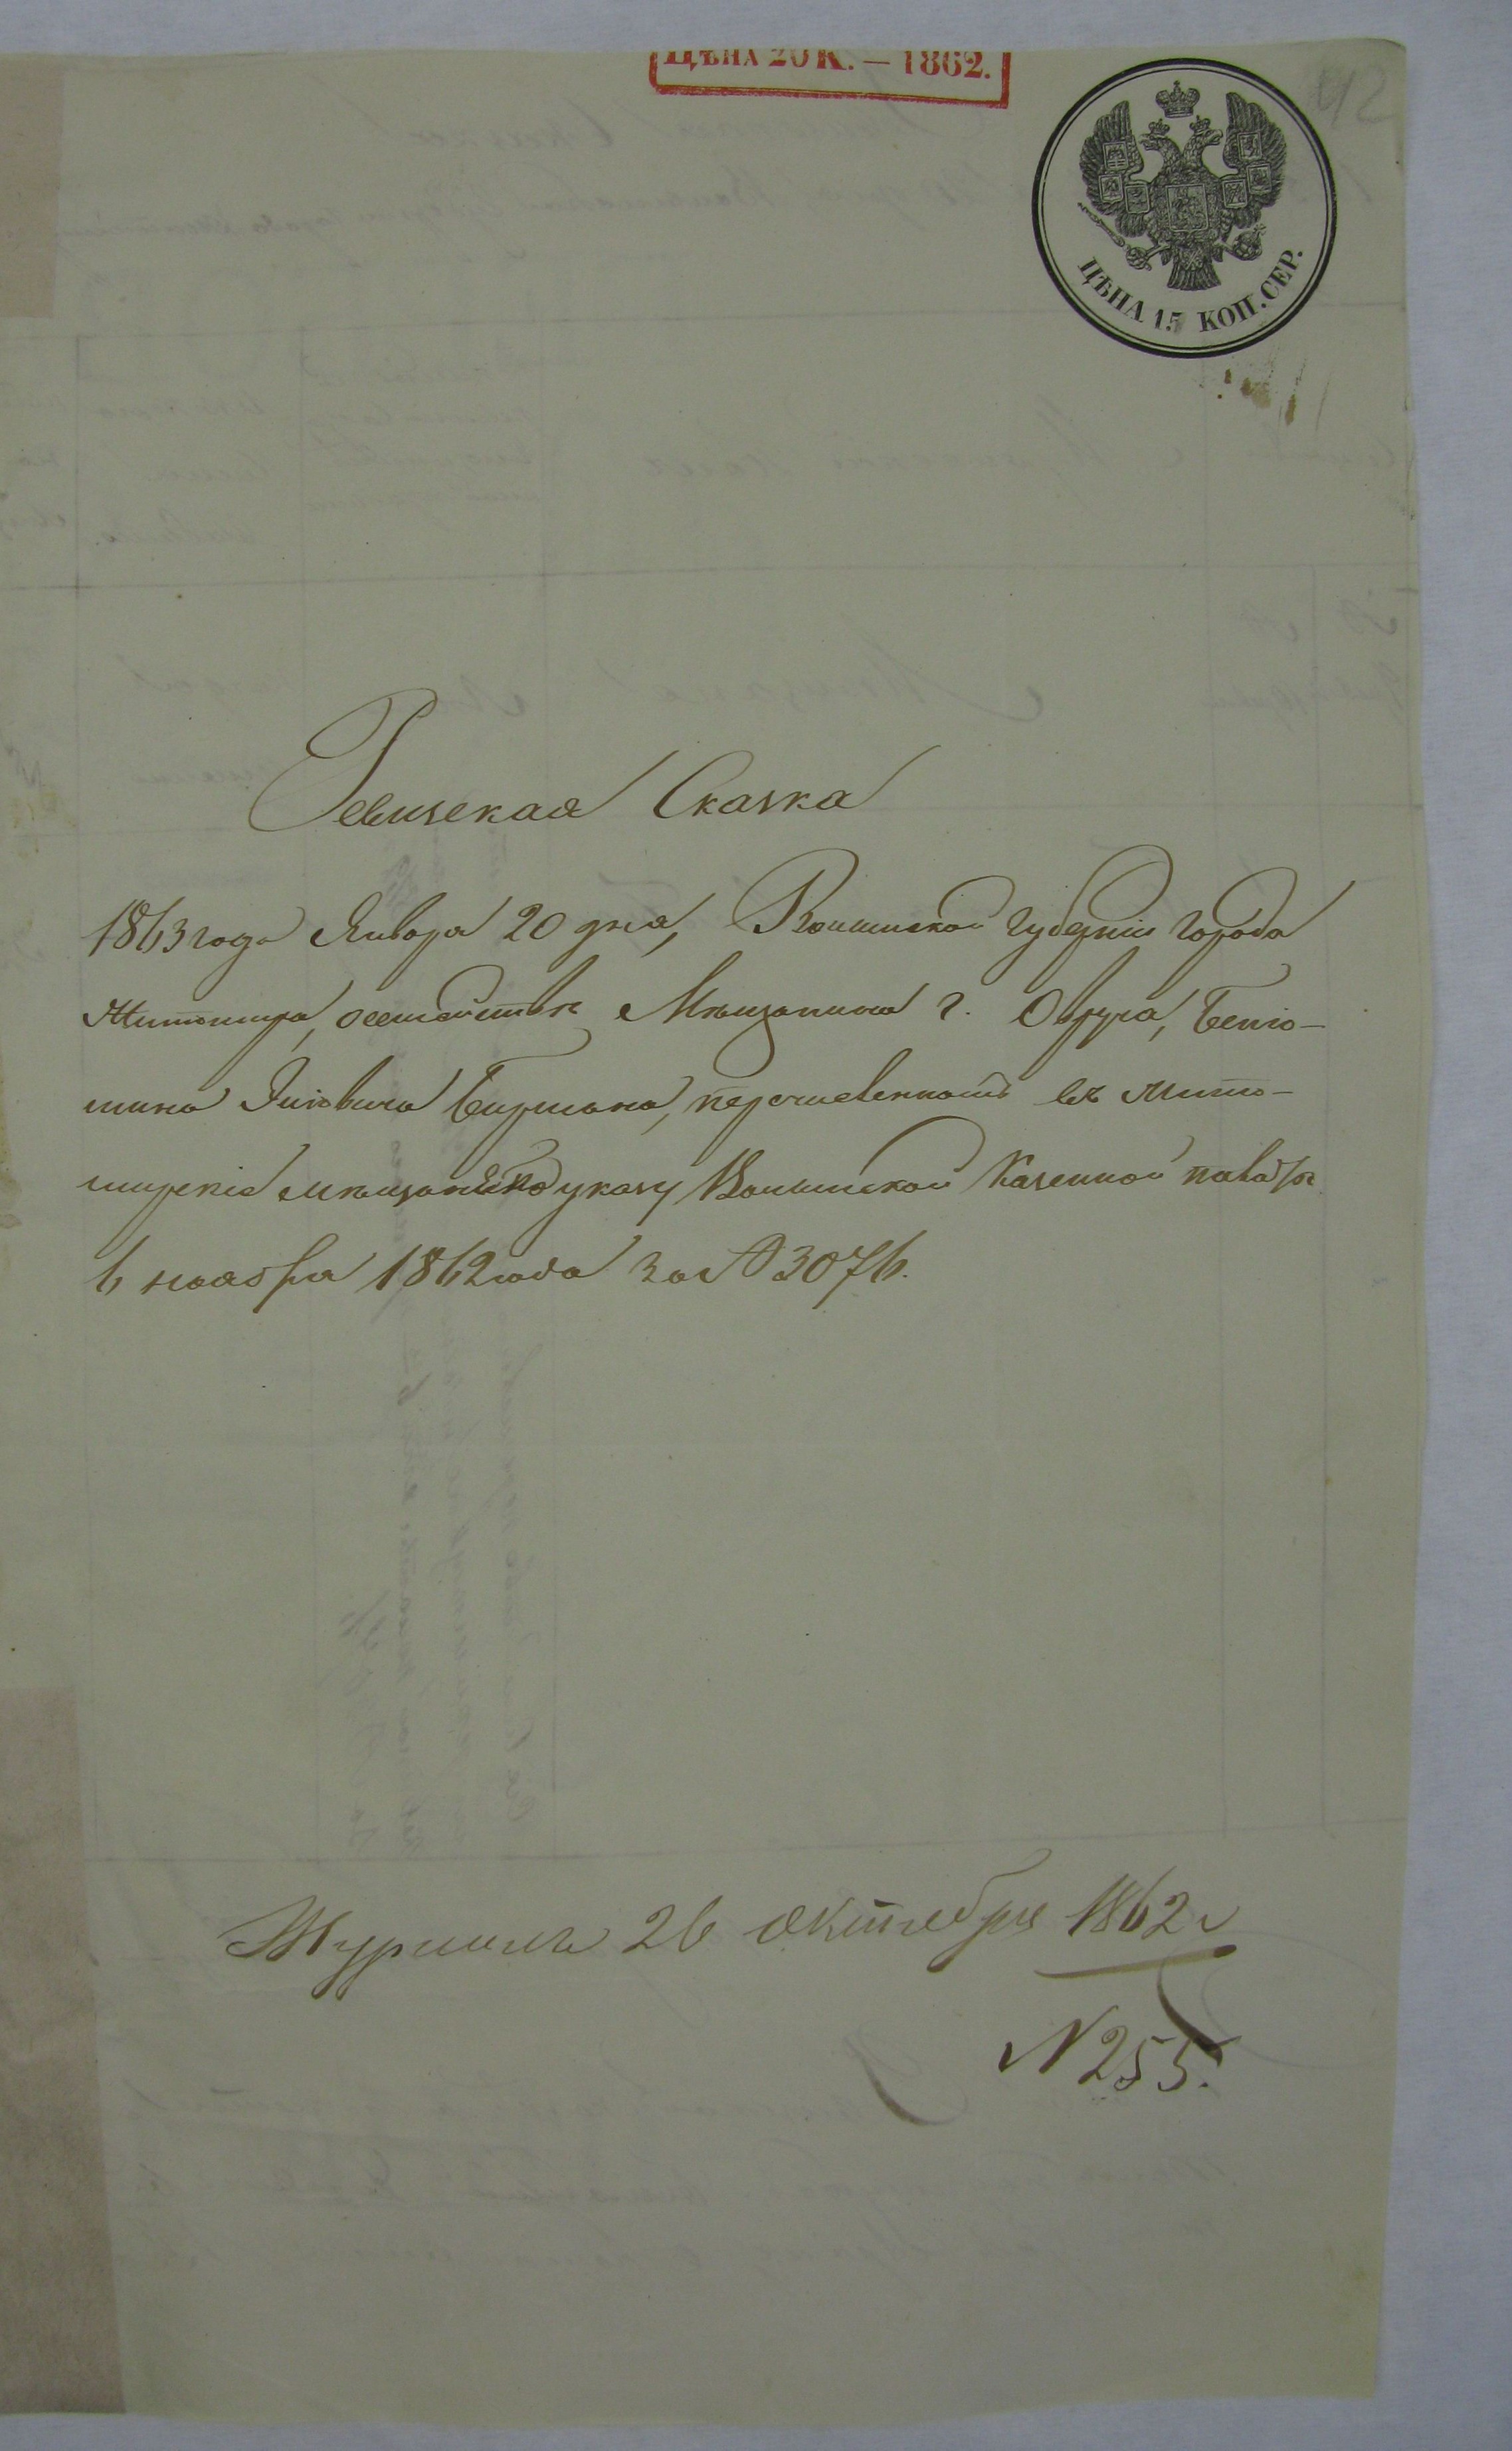 ЦѢНА 20 К. — 1862.
42
ЦѢНА 15 КОП. СЕР.
Ревизская Сказка
1863 года Января 20 дня, Волынской губерніи города
Житомира, о семействѣ Мѣщанина г. Овруча, Беніо-
мина Зиновича Бирмана, перечисленномъ въ жито-
мирскіе мѣщане по указу Волынской Казенной палаты
6 ноября 1862 года за № 3076.
Журналъ 26 октября 1862 г
N 255.